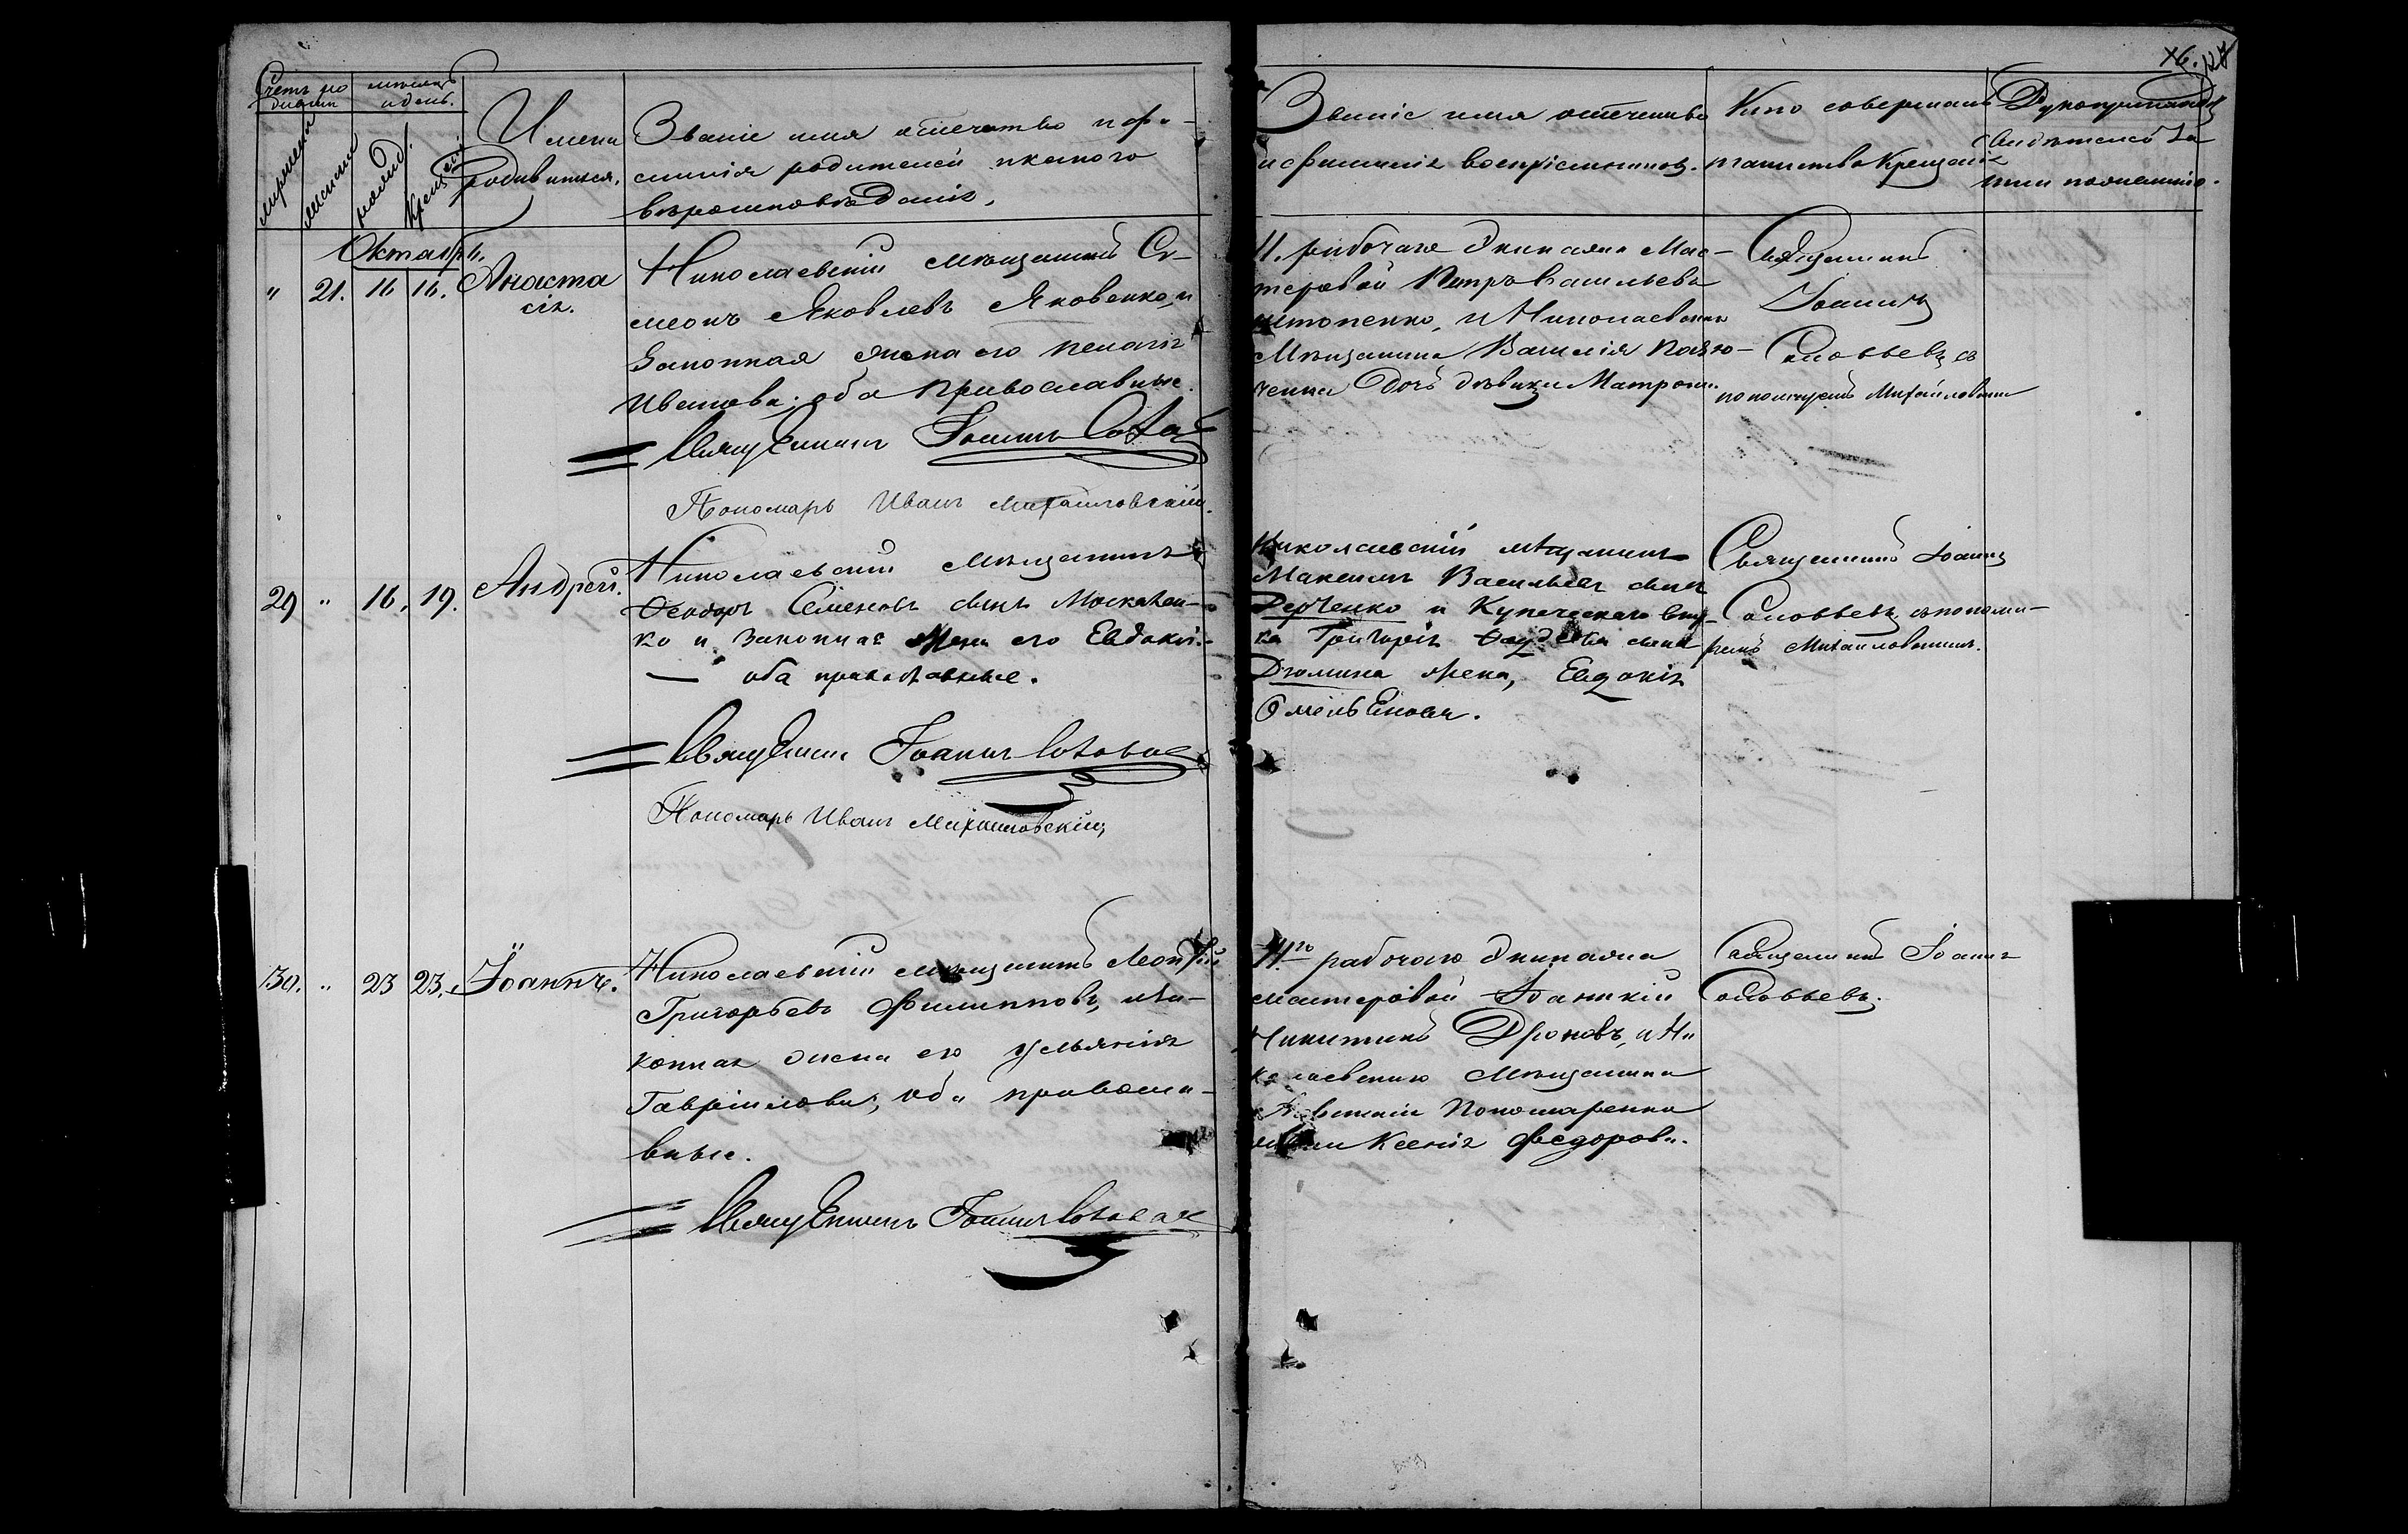 16. 127
Счетъ ро
дившихся
мѣсяцъ
и день.
мужеска
женска
рожд.
крещенія
Имена
родившихся.
Званіе имя отечество и фа-
милія родителей и какого
вѣроисповѣданія.
Званіе имя отечество
и фамилія воспріемниковъ.
Кто совершалъ
таинство Крещенія
Рукоприкладство
свидѣтелей за
писи по желанію.
Октябрь.
" 21. 16 16. Анаста
сія.
Николаевскій мѣщанинъ Си-
меонъ Яковлевъ Яковенко, и
законная жена его Пелагія
Иванова; оба православные.
Священникъ Іоаннъ
Пономарь Иванъ Михайловскій.
11. рабочаго экипажа Мас-
теровой Петръ Васильевъ
и Николаевскаго
Мѣщанина Василія
дочь дѣвица Матрона.
Священникъ
Іоаннъ
Соловьевъ съ
пономаремъ Михайловскимъ
29 " 16. 19. Андрей.
Николаевскій мѣщанинъ
Ѳеодоръ Семеновъ сынъ Москален-
ко и законная жена его Евдокія
— оба православные.
Священникъ Іоаннъ
Пономарь Иванъ Михайловскій
Николаевскій мѣщанинъ
Максимъ Васильевъ сынъ
Дерченко и Купеческаго вну-
ка Григорія сына
Дюмина жена, Евдокія
Омельянова.
Священникъ Іоаннъ
Соловьевъ съ понома-
ремъ Михайловскимъ.
30. " 23 23. Іоаннъ.
Николаевскій мѣщанинъ
Григорьевъ Филипповъ, и за-
конная жена его Ульянія
Гавріилова; оба правосла-
вные.
Священникъ Іоаннъ
11го рабочаго экипажа
мастеровой
Никитинъ Дроновъ, и Ни
колаевскаго Мѣщанина
Пономаренка
жена Ксенія Федорова.
Священникъ Іоаннъ
Соловьевъ.